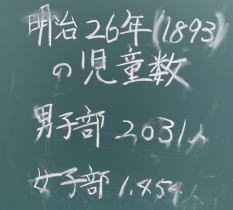 明治26年(1893)
の児童数
男子部 2031人
女子部 1.454人